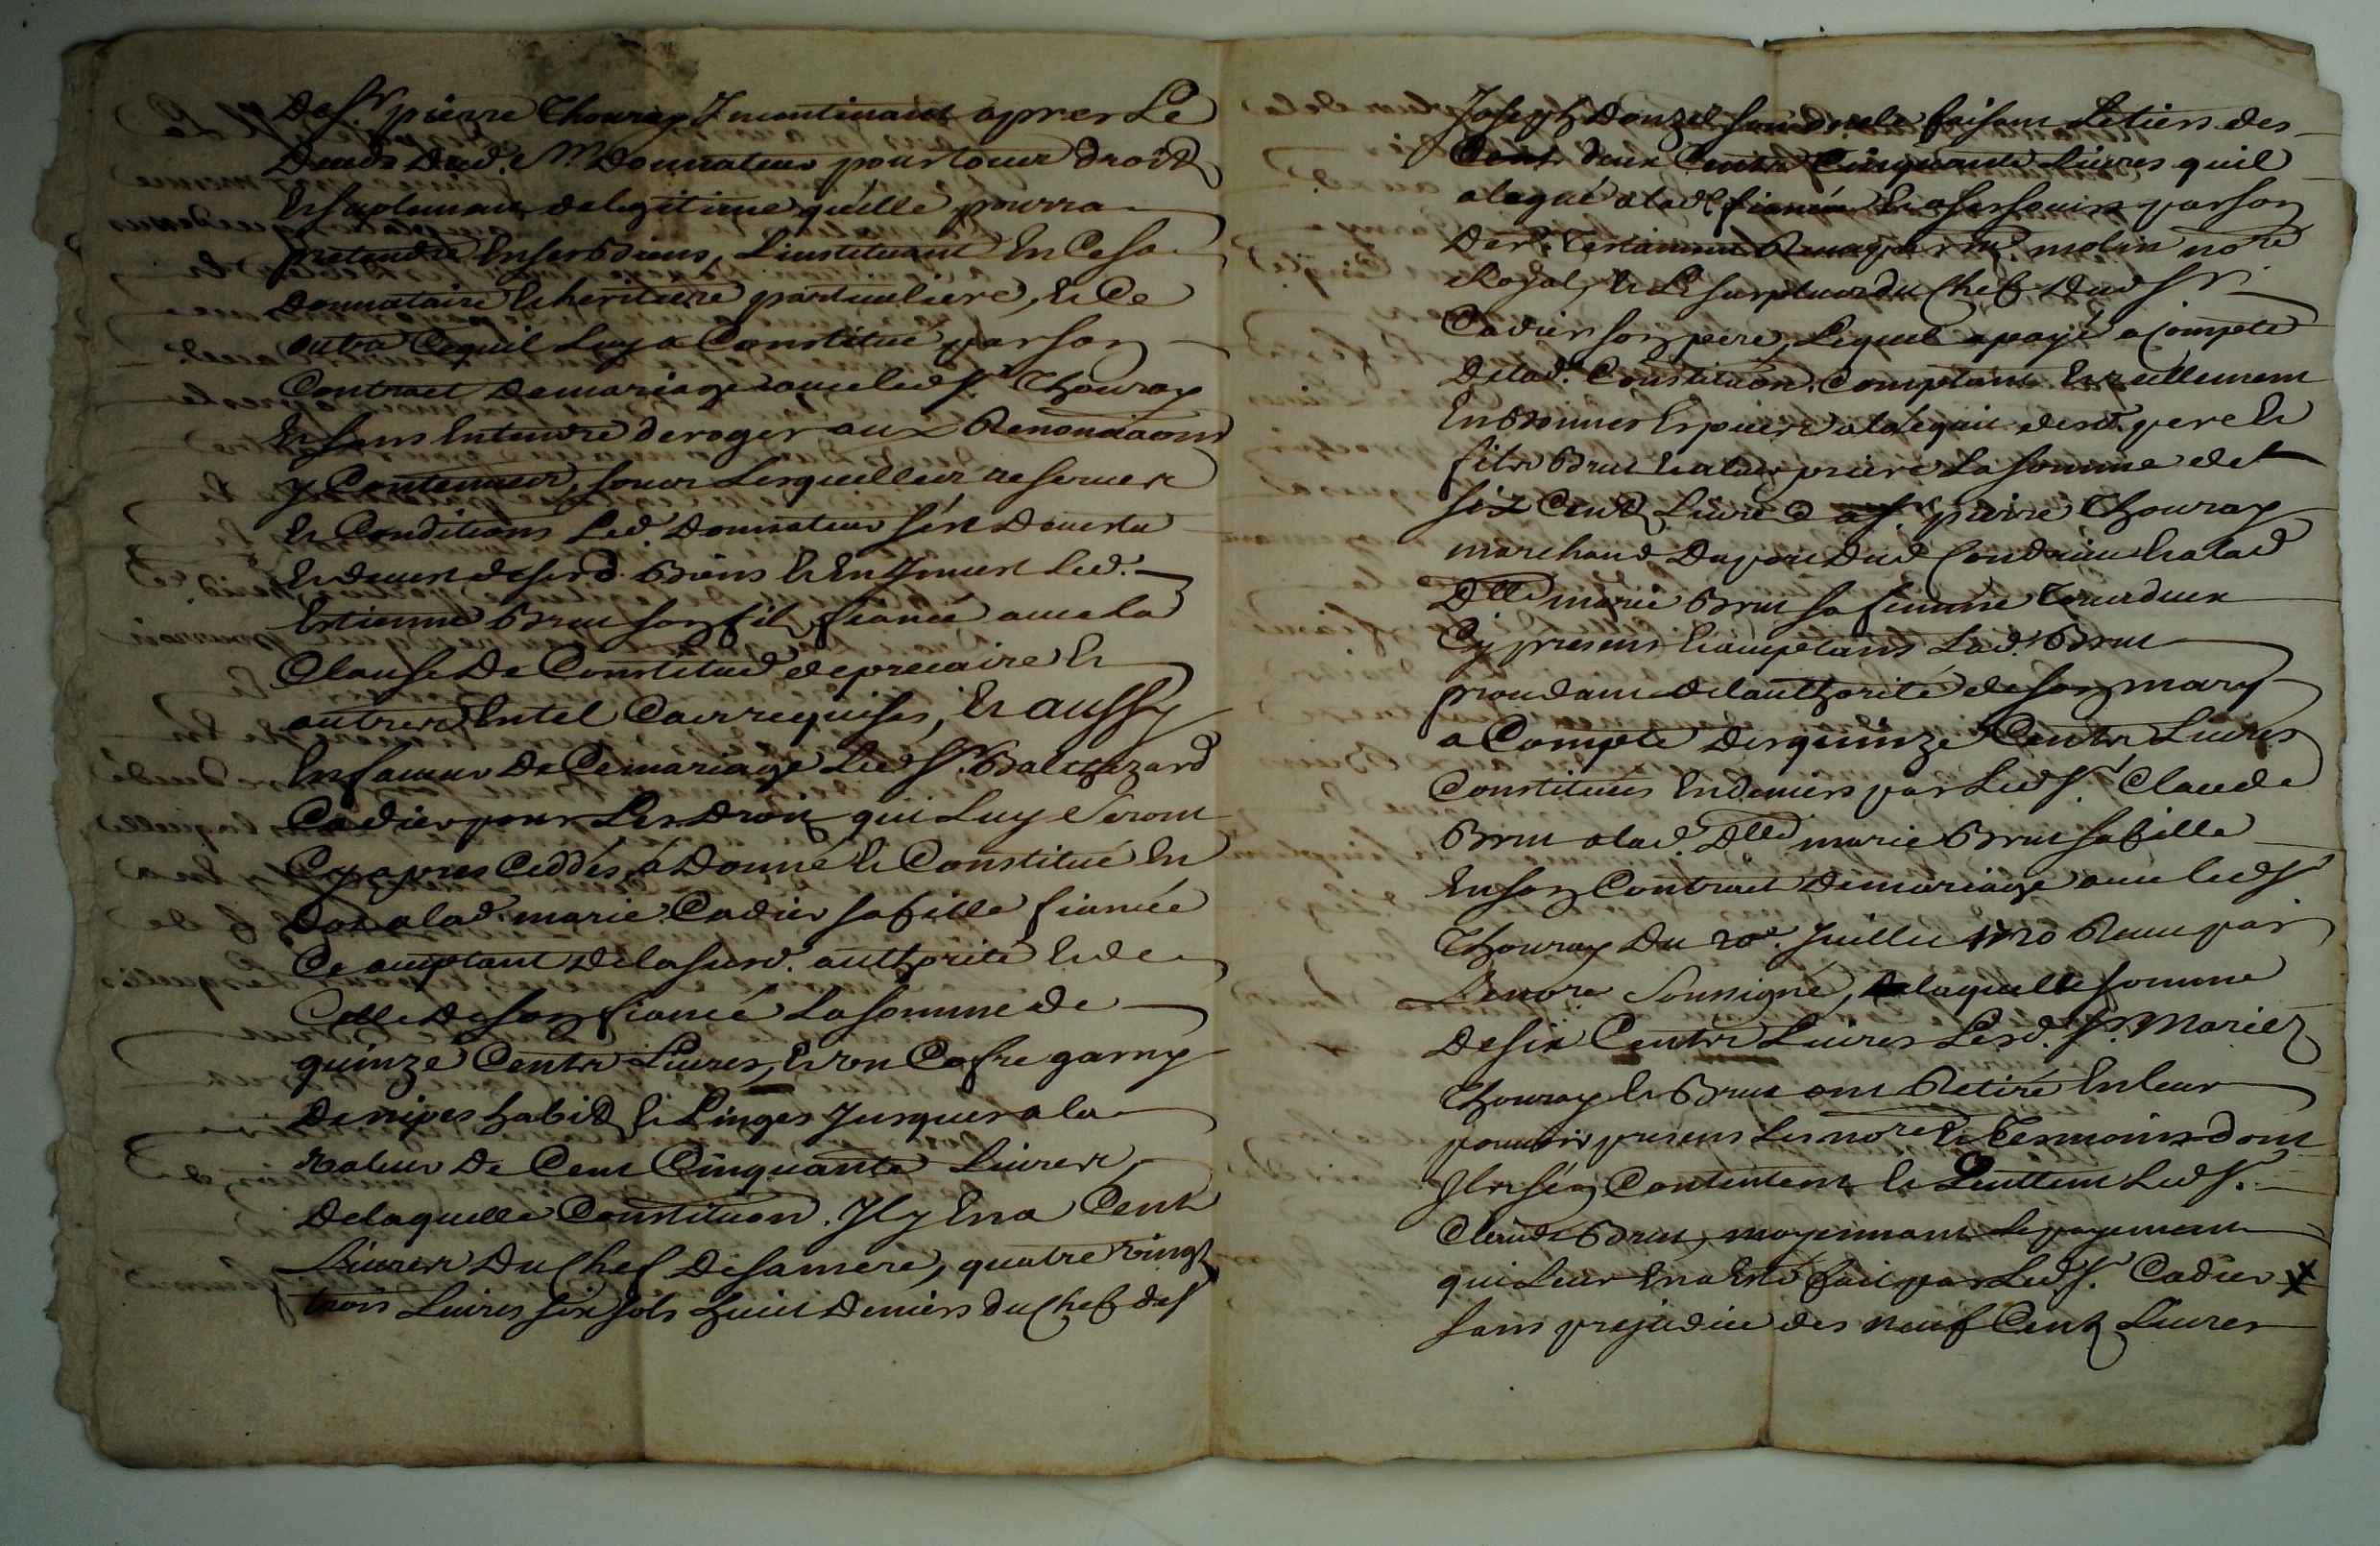 De Sr. pierre Thouray Incontinant apres Le
Deceds Dud. Mr. Donnateur pour tous droits
Et suplemens de legitime quelle pourra
pretendre En ses Biens, L'instituant En Ce sa
Donnataire Et heritiere particuliere, Et Ce
outre Cequil Luy a Constitué par son
Contract De mariage avec led Sr. Thouray
Et sans Entendre deroger aux Renonciaons
y Contenues, sous Lesquelles reserves
Et Conditions Led. Donnateur s'est Devestu
Et devest de sesd. Biens Et En Jnvest Led.
Estienne Brun son fils fiancé avec la
Clause De Constitut de precaire Et
autres En tel Cas requises, Et aussy
En faveur De Ce mariage Led Sr. Balthezard
Cadier pour Les Droits qui Luy Seront
Cy apres Ceddés, a Donné Et Constitué En
Dot a lad. marie Cadier sa fille fiancée
Ce acceptant De la susd. authorité Et de
Celle De son fiancé La somme De
quinze Cents Livres, Et un Cofre garny
De nipes habits Et Linges Jusques a la
valeur De Cent Cinquante Livres,
De laquelle Constitution. Il y En a Cent
Livres Du Chef De sa mere, quatre vingt
trois Livres six sols huit Deniers du Chef de Sr
Joseph Donzel son oncle faisant Le tiers des
Cent deux Cents Cinquante Livres quil
a legué a lad. fiancée Et a ses soeurs par son
Der. Testament Receu par Me. molin nore
Royal, Et Le surplus du Chef Dud Sr.
Cadier son pere, Lequel a payé a Compte
De lad. Constituon. Comptant Et reellement
En Bonnes Espèces a la lequit desd. pere Et
fils Brun Et a leur priere La somme de
six Cents Livres a Sr. pierre Thouray
marchand Dud Condrieu Et a lad
Dlle marie Brun sa femme Tous deux
Cy presens Et acceptans Lad. Brun
procedant de l'authorité de son mary
a Compte Des quinze Cents Livres
Constitués En deniers par Led Sr. Claude
Brun a lad. Dlle marie Brun sa fille
En son Contract De mariage avec led Sr
Thouray Du 20e. Juillet 1720 Receu par
Le nore Soussigné, De laquelle somme
De six Cents Livres Lesd. Sr. Mariez
Thouray Et Brun ont Retiré En leur
pouvoir presens Les nore Et Tesmoins dont
Ils s'en Contentent Et Quittent Led Sr.
Claude Brun, moyennant Le payement
qui Leur En a Esté fait par Led Sr. Cadier X
sans prejudice des neuf Cents Livres